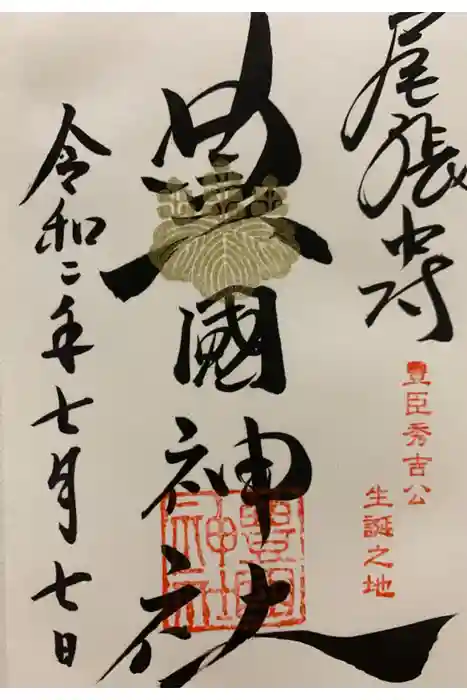 尾張中村
豊臣秀吉公
生誕之地
豊國神社
豊國
神社
令和二年七月七日